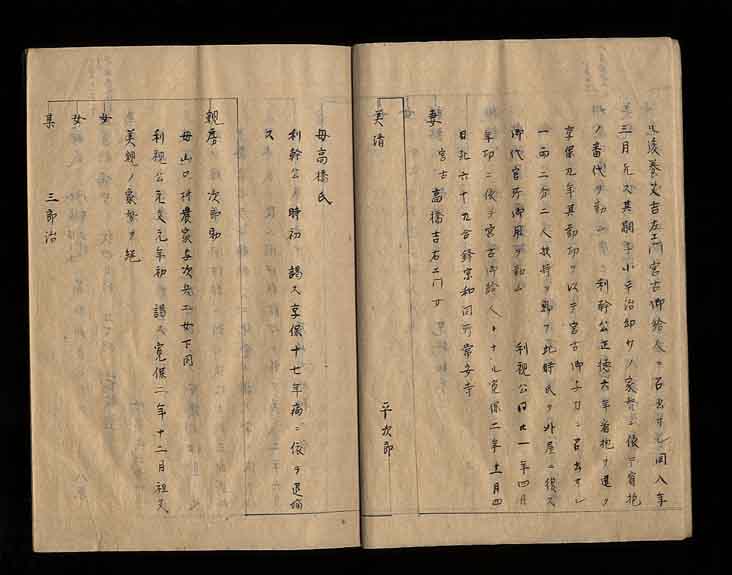 此後養父吉左エ門宮古御給人ヲ召出サレ同八年
三月死ス其期半小平治却サノ家督ニ依テ育抱
ノ番代ヲ勤 利幹公正徳六年育抱ヲ退ク
享保九年其勤功ヲ以テ宮古御与力ニ召出サレ
一両二分二人扶持ヲ賜フ此時氏ヲ外屋ニ復ス
御代官所御服ヲ勤ム 利視公同廿一年四月
年功ニ依テ宮古御給人トナル寛保二年十一月四
日死六十九合葬宗和同所常安寺
妻 宮古 高橋吉右エ門女
美清 平次郎
母高橋氏
利幹公ノ時初 謁ス享保十七年病ニ依テ退
ス
親房 次郎助
母山口村農家与次兵エ女下同
利視公元文元年初 謁ス寛保二年十二月祖父
美親ノ家督ヲ継
女
女
某 三郎治